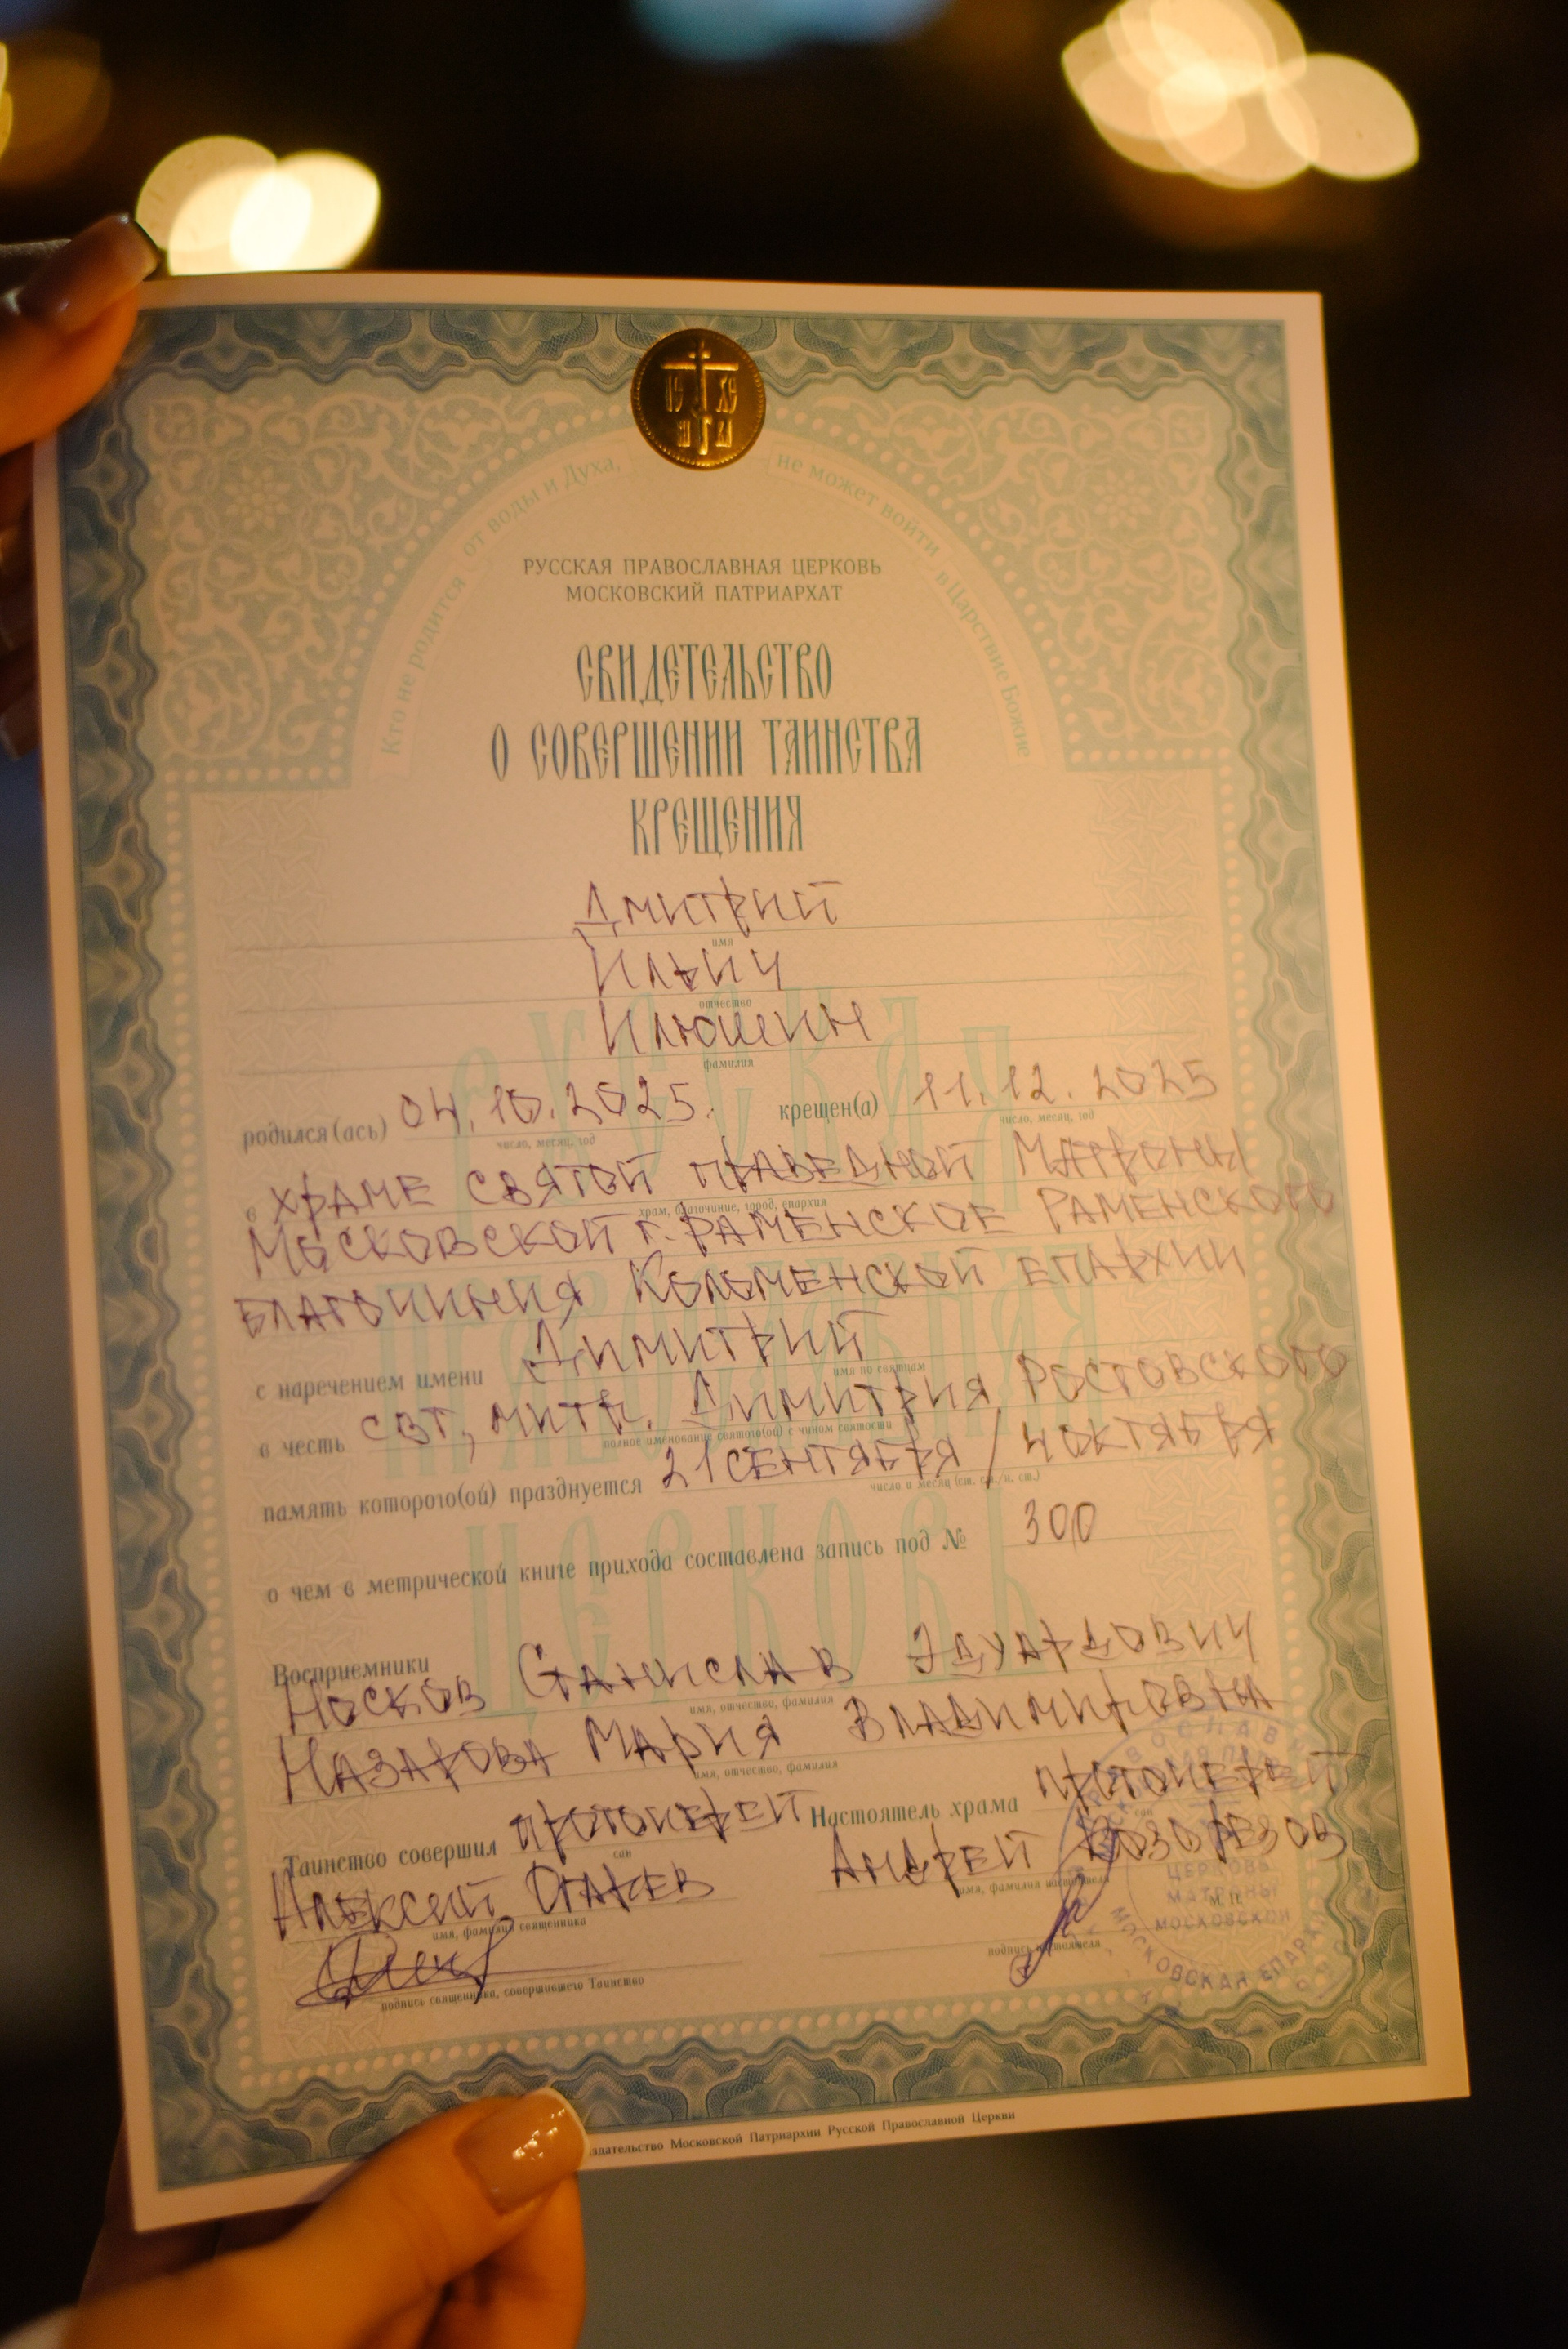 IС ХС
Кто не родится от воды и Духа, не может войти в Царствие Божие
РУССКАЯ ПРАВОСЛАВНАЯ ЦЕРКОВЬ
МОСКОВСКИЙ ПАТРИАРХАТ
СВИДЕТЕЛЬСТВО
О СОВЕРШЕНИИ ТАИНСТВА
КРЕЩЕНИЯ
Дмитрий
имя
Ильич
отчество
Илюшин
фамилия
родился(ась) 04.10.2025. крещен(а) 11.12.2025
число, месяц, год число, месяц, год
в храме святой праведной Матроны
храм, благочиние, город, епархия
Московской г. Раменское Раменского
благочиния Коломенской епархии
с наречением имени Димитрий
имя по святцам
в честь свт, митр. Димитрия Ростовского
полное именование святого(ой) с чином святости
память которого(ой) празднуется 21 сентября / 4 октября
число и месяц (ст. ст./н. ст.)
о чем в метрической книге прихода составлена запись под № 300
Восприемники
Носков Станислав Эдуардович
имя, отчество, фамилия
Назарова Мария Владимировна
имя, отчество, фамилия
Таинство совершил протоиерей Настоятель храма протоиерей
сан сан
Алексей Андрей
имя, фамилия священника имя, фамилия настоятеля
подпись священника, совершившего Таинство подпись настоятеля
М.П.
ЦЕРКОВЬ
МАТРОНЫ
МОСКОВСКОЙ
МОСКОВСКАЯ ЕПАРХИЯ
РУССКАЯ
ПРАВОСЛАВНАЯ
ЦЕРКОВЬ
Московской Патриархии Русской Православной Церкви